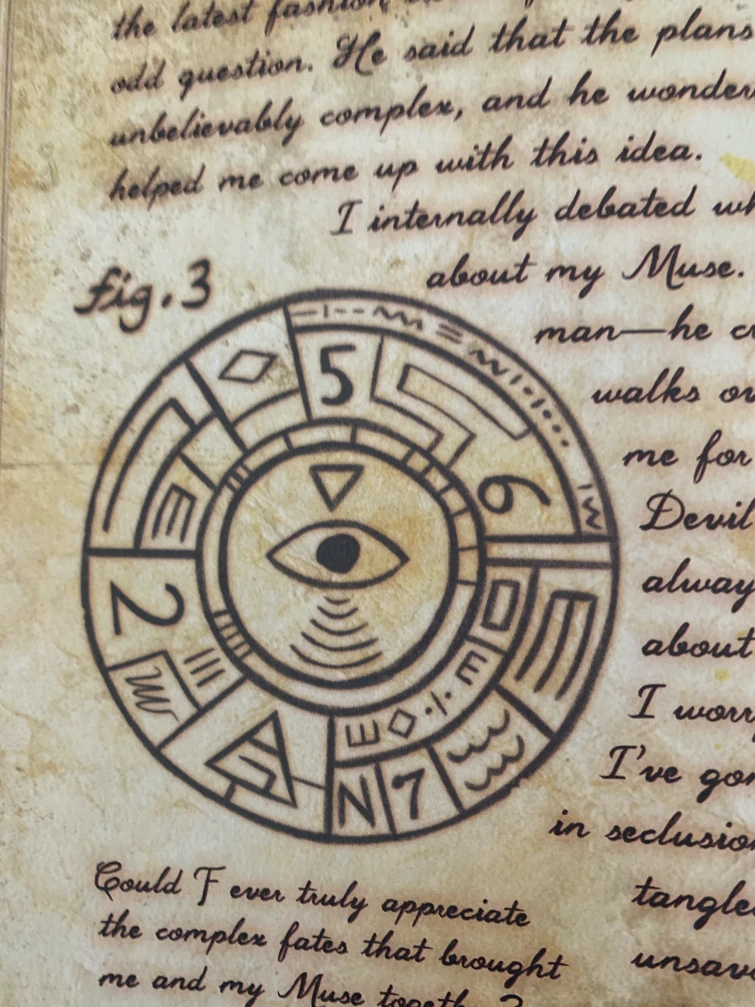 the latest fashion
odd question. He said that the plans
unbelievably complex, and he
helped me come up with this idea.
I internally debated
about my Muse.
fig. 3
man—he
walks
me for
Devil
about
I
I've
in
5
6
2
N 7
Could I ever truly appreciate
the complex fates that brought
me and my Muse